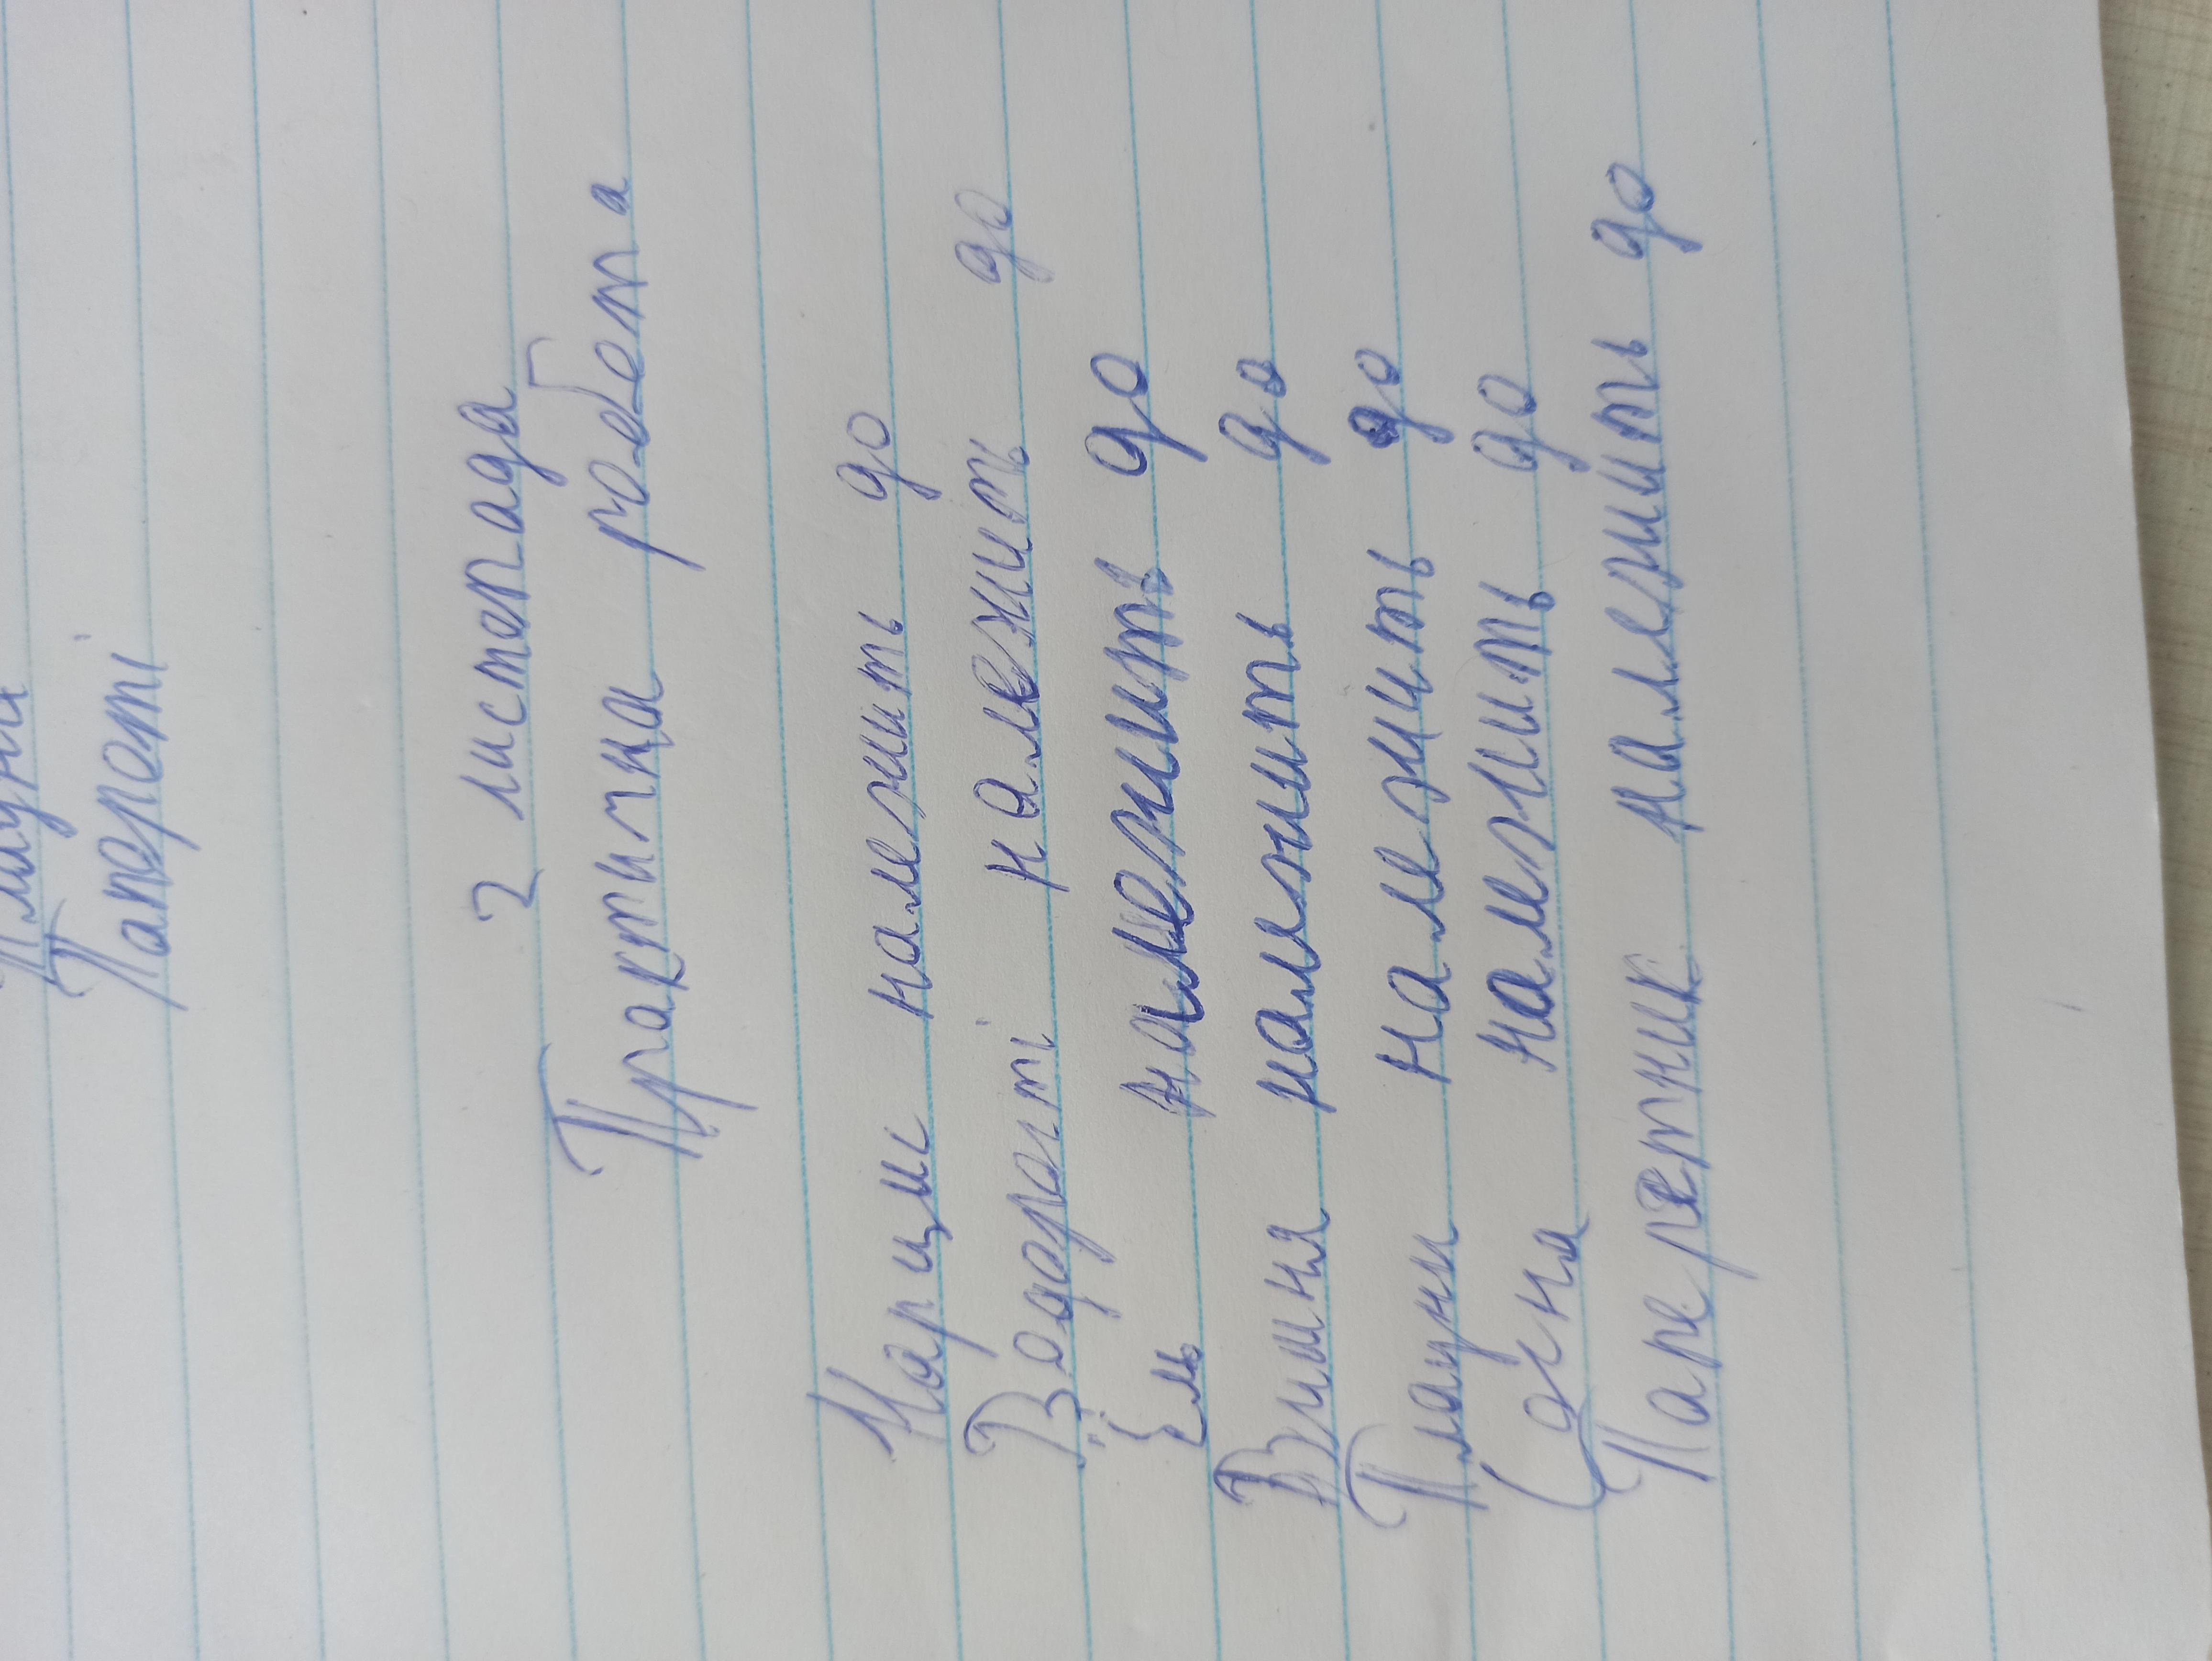 Плауни
Папороті
2 листопада
Практична робота
Нарцис належить до
Водорості належить до
Ель належить до
Вишня належить до
Плауни належить до
Сосна належить до
належить до